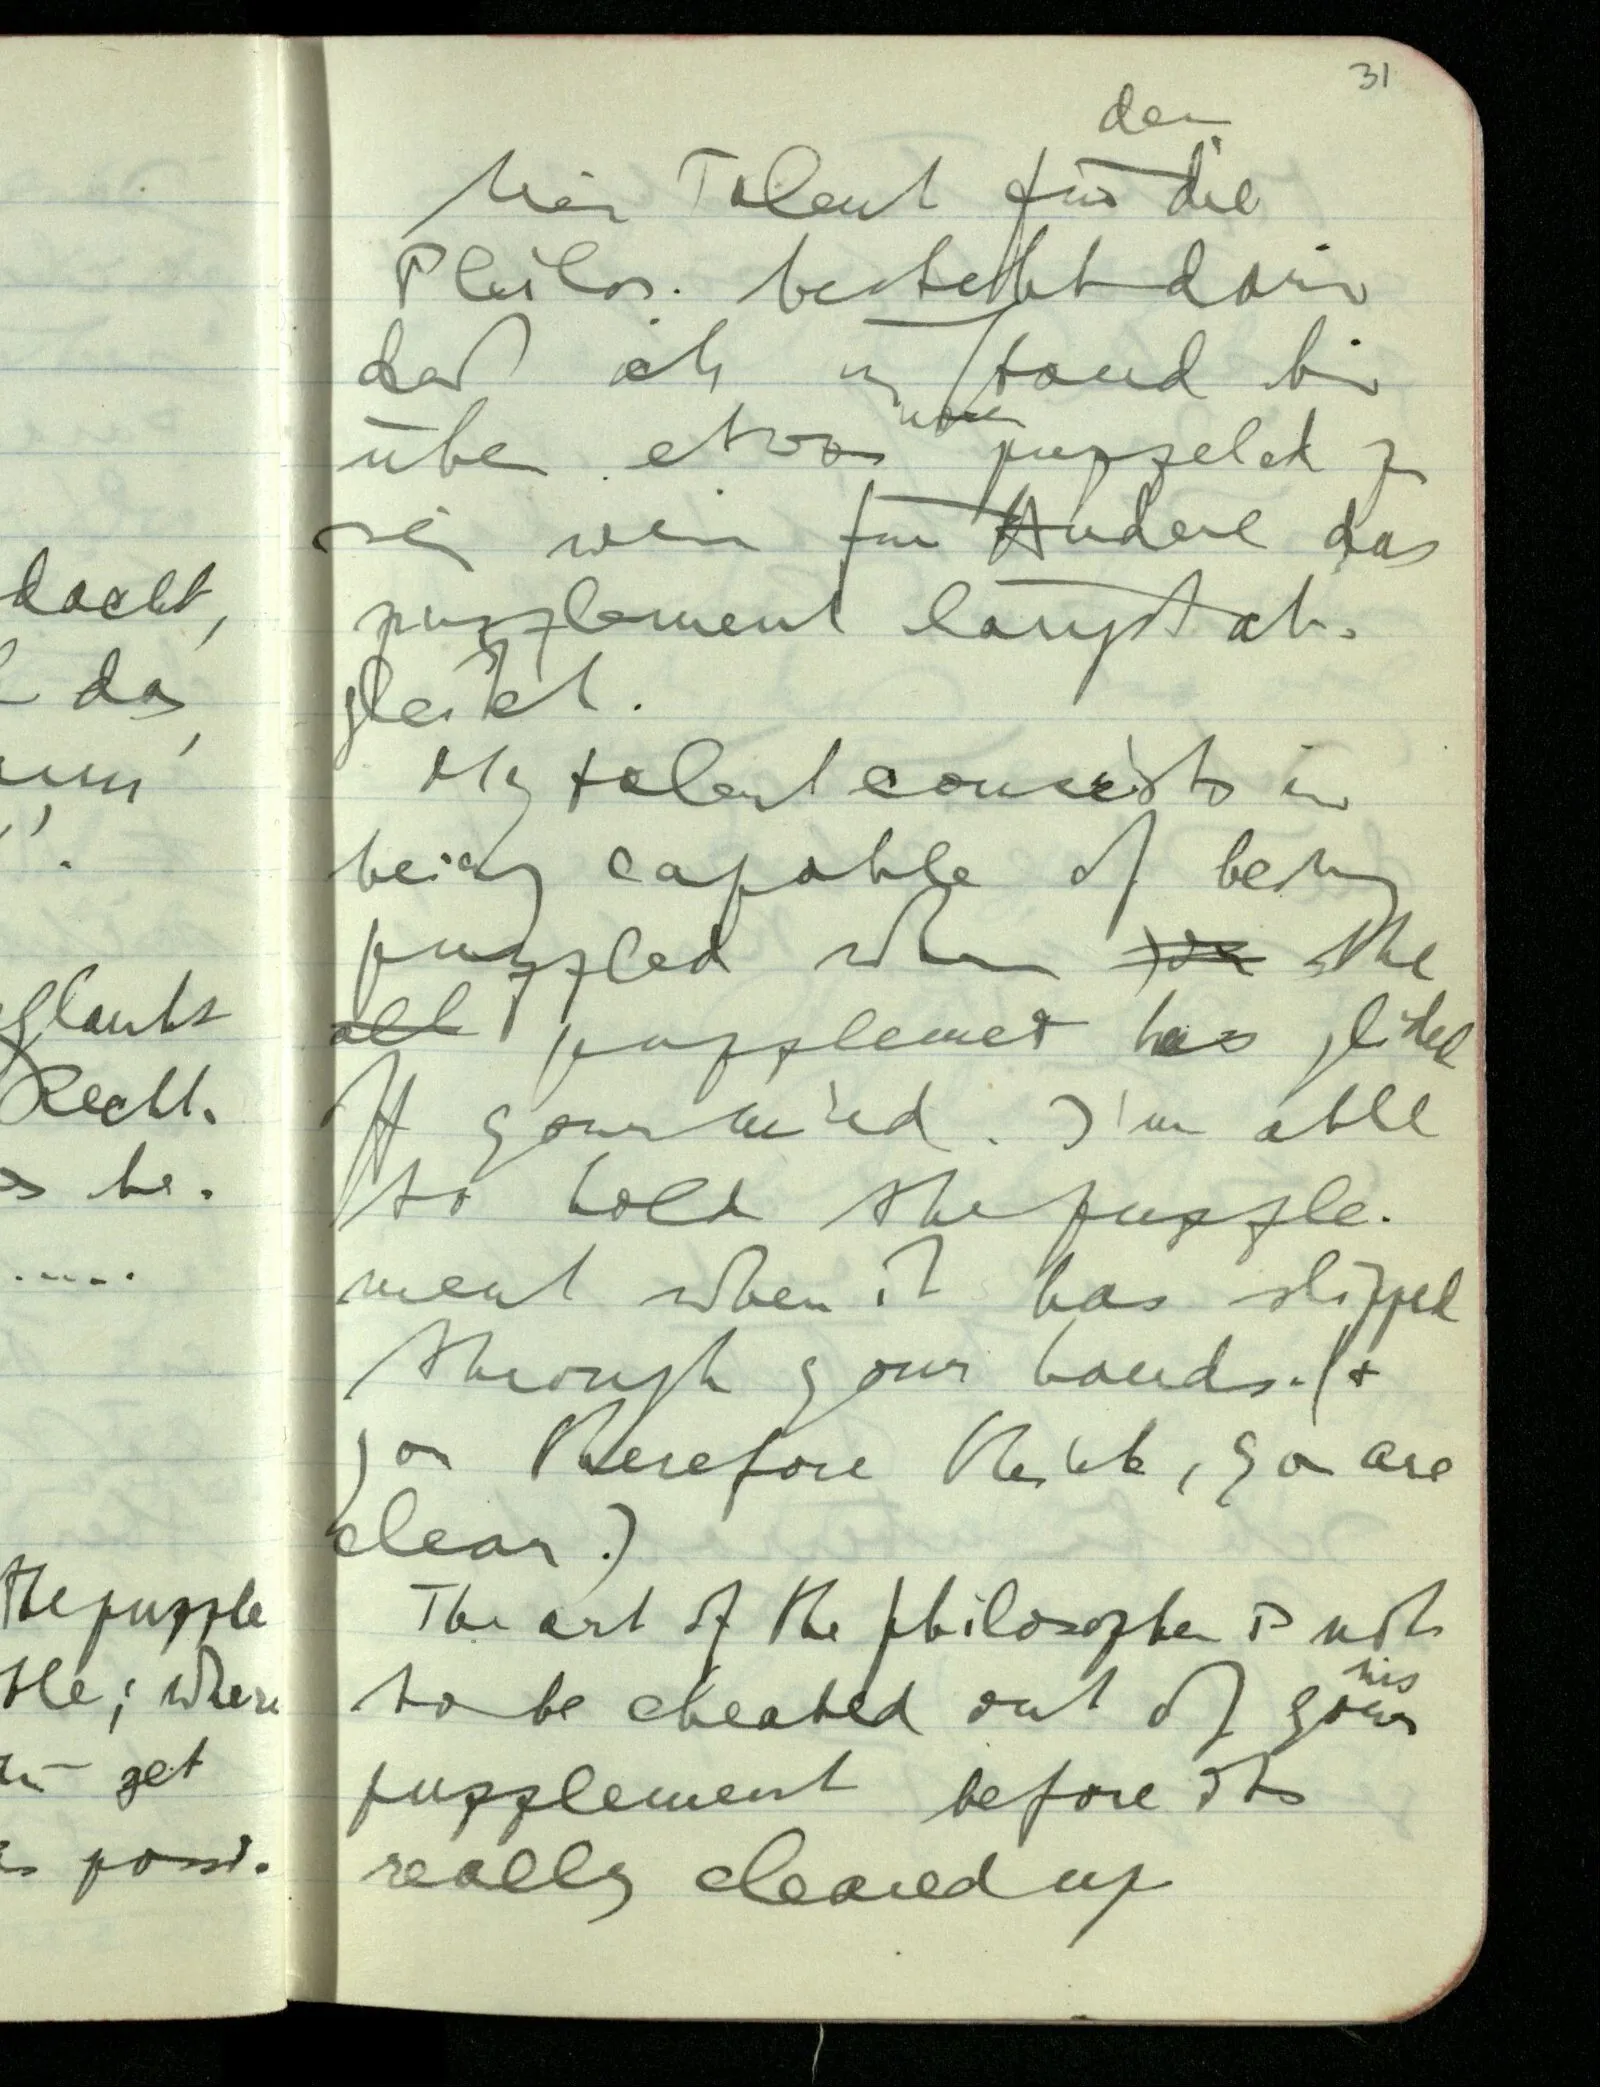 dacht,
das
glaubt
Recht.
be.
.....
the puzzle
ble; where
get
possi-
31
den
Mein Talent für die
Philos. besteht darin
daß ich im stand bin
über etwas noch puzzeled zu
sein wenn für Andere das
puzzlement längst ab-
gleitet.
My talent consists in
being capable of being
puzzled when you the
all puzzlement has glided
off your mind. I'm able
to hold the puzzle-
ment when it has slipped
through your hands. (&
you therefore think, you are
clear.)
The art of the philosopher is not
his
to be cheated out of your
puzzlement before its
really cleared up